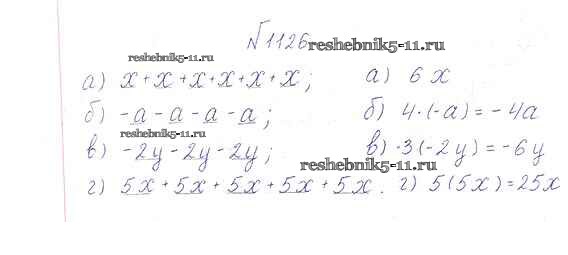 №1126
reshebnik5-11.ru
reshebnik5-11.ru
а) x + x + x + x + x + x ; а) 6 x
б) - a - a - a - a ; б) 4 · (-a) = - 4a
reshebnik5-11.ru
в) - 2y - 2y - 2y ; в) · 3 (-2 y) = - 6 y
reshebnik5-11.ru
г) 5x + 5x + 5x + 5x + 5x . г) 5 (5x) = 25x